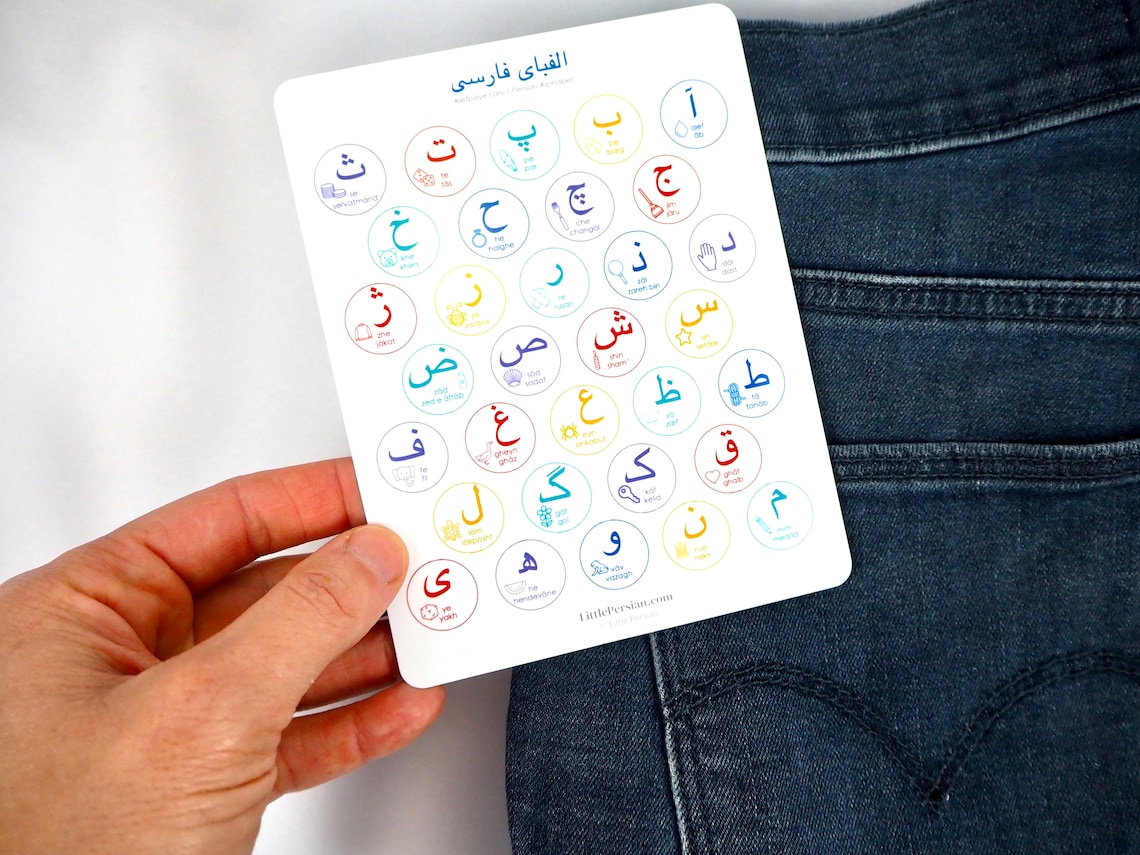 الفبای فارسی
Alefbâye Fârsi | Persian Alphabet
آ
alef
âb
ب
be
barg
پ
pe
par
ت
te
tâs
ث
se
servatmand
ج
jim
jâru
چ
che
changâl
ح
he
halghe
خ
khe
khers
د
dâl
dast
ذ
zâl
zareh bin
ر
re
rusari
ز
ze
zanbur
ژ
zhe
jâkat
س
sin
setâre
ش
shin
sham'
ص
sâd
sadaf
ض
zâd
zed e âftâb
ط
tâ
tanâb
ظ
zâ
zarf
ع
eyn
ankabut
غ
gheyn
ghâz
ف
fe
fil
ق
ghâf
ghalb
ک
kâf
kelid
گ
gâf
gol
ل
lâm
lâkposht
م
mim
medâd
ن
nun
nakh
و
vâv
vazagh
ه
he
hendevâne
ی
ye
yakh
LittlePersian.com
© Little Persian